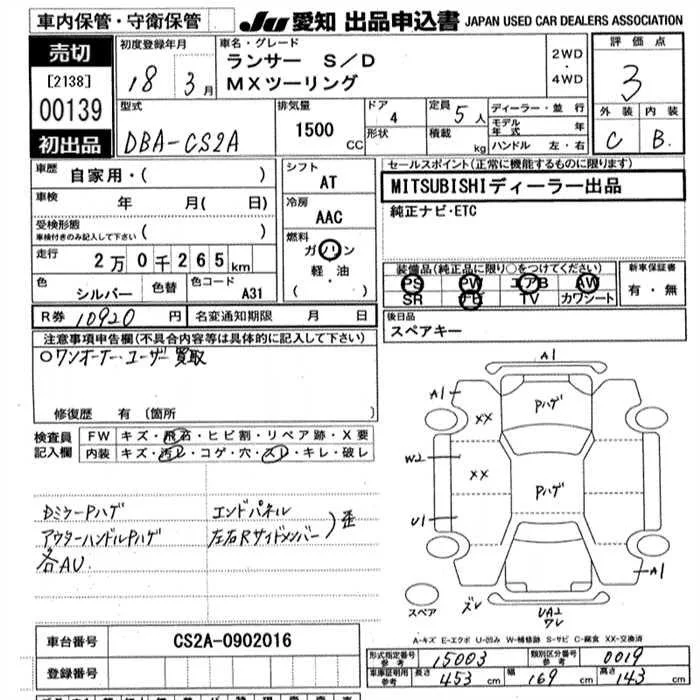 車内保管・守衛保管
JU 愛知 出品申込書 JAPAN USED CAR DEALERS ASSOCIATION
売切
[2138]
00139
初出品
初度登録年月
18 3月
車名・グレード
ランサー S/D
MXツーリング
2WD
・
4WD
評価点
3
外装 内装
C B.
型式
DBA-CS2A
排気量
1500 CC
ドア 4
形状
定員 5 人
積載 kg
ディーラー・並行
モデル年式 年
ハンドル 左・右
車歴 自家用・( )
車検 年 月( 日)
受検形態
車検付きのみ記入して下さい ( )
走行 2万0千265km
色 シルバー 色替 色コード A31
シフト
AT
冷房
AAC
燃料
ガソリン
軽・油
( ・ )
セールスポイント(正常に機能するものに限ります)
MITSUBISHIディーラー出品
純正ナビ・ETC
装備品(純正品に限り○をつけてください)
PS PW エアB AW
SR ナビ TV カワシート
新車保証書
有・無
R券 10920 円 名変通知期限 月 日
後日品
スペアキー
注意事項申告欄(不具合内容等は具体的に記入して下さい)
○ワンオーナー・ユーザー買取
修復歴 有 (箇所 )
検査員
記入欄
FW キズ・飛石・ヒビ割・リペア跡・X要
内装 キズ・汚レ・コゲ・穴・スレ・キレ・破レ
DミラーPハゲ
アウターハンドルPハゲ
各AU
エンドパネル
左右Rサイドメンバー)歪
A1
A1
XX
Pハゲ
W2
XX
Pハゲ
U1
A1
スペア
ズレ
UA2
ワレ
A-キズ E-エクボ U-凹み W-補修跡 S-サビ C-腐食 XX-交換済
車台番号 CS2A-0902016
登録番号
形式指定番号
参考
15003
類別区分番号
参考
0019
車庫証明用
参考
長さ 453 cm 幅 169 cm 高さ 143 cm